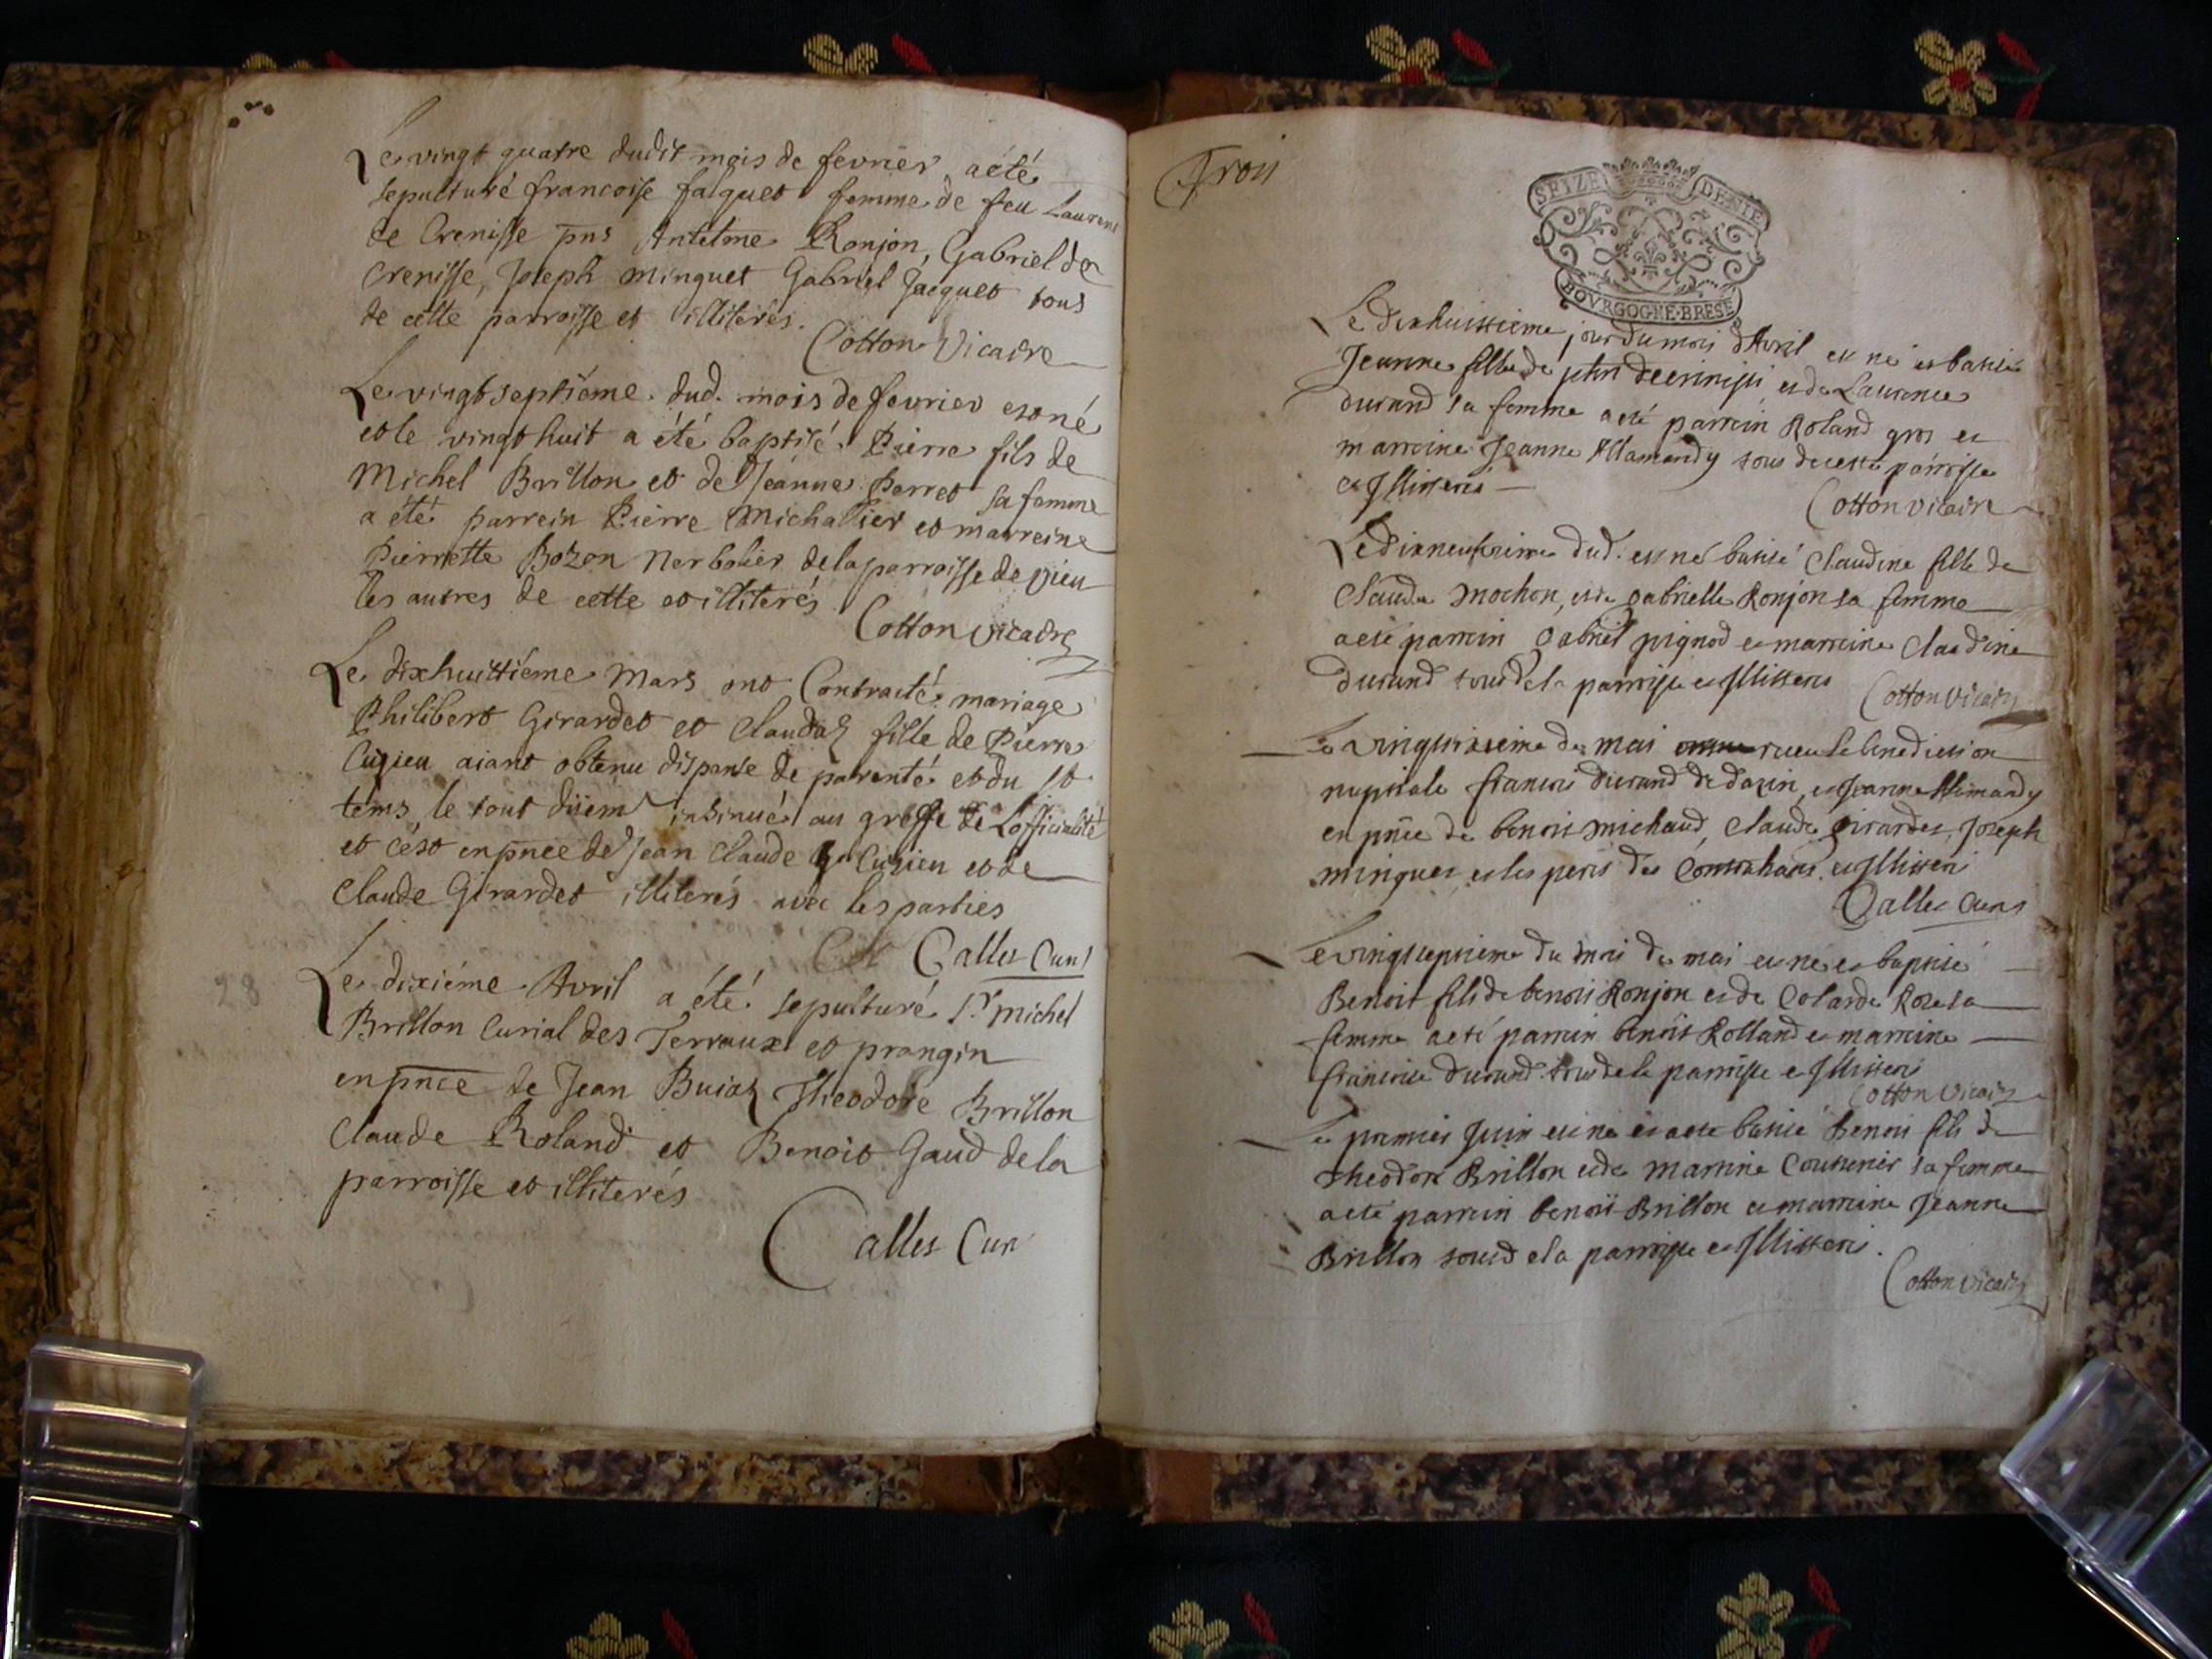 Le vingt quatre dudit mois de fevrier a été
sepulturé francoise falquet femme de feu Laurent
de Crenisse pns Antelme Ronjon, Gabriel de
Crenisse, Joseph Minguet Gabriel Jacquet tous
de cette parroisse et illiterés.
Cotton Vicaire
Le vingt septiéme dud. mois de fevrier est né
et le vingt huit a été baptisé Pierre fils de
Michel Brillon et de Jeanne Perret sa femme
a été parrein Pierre Michallier et marreine
Pierrette Bozon Nerbolier de la parroisse de vieu
les autres de cette et illiterés
Cotton vicaire
Le dixhuittiéme Mars ont Contracté mariage
Philibert Girardet et Claudaz fille de Pierre
Cuzieu aiant obtenu dispense de parenté et du
tems le tout düem insinué au greffe de Lofficialité
et c'est en pnce de Jean Claude Cuzieu et de
Claude Girardet illiterés avec les parties
Calles Curé
28
Le dixiéme Avril a été sepulturé Sr Michel
Brillon Curial des Terraux et prangin
en pnce de Jean Buiaz Theodore Brillon
Claude Roland et Benoit Gaud de la
parroisse et illiterés
Calles Curé
Trois
SEIZE DENIE
BOVRGOGNE·BRESE
Le dixhuittieme jour du mois d'Avril est né et batisé
Jeanne fille de de Crenisse et de Laurence
durand sa femme a eté parrein Roland gros et
marreine Jeanne Allamandy tous de cette parroisse
et Illitterés
Cotton vicaire
Le dixneufvieme dud. est né batisé Claudine fille de
Claude Mochon, et de gabrielle Ronjon sa femme
a eté parrein Gabriel pignod et marreine Claudine
Durand tous de la parroisse et Illitterés
Cotton Vicaire
Le vingt de mai receu la benediction
nuptiale francois durand de dazin, et Jeanne Allmandy
en pnce de benoit michaud, Claude girardet, Joseph
minguet et les peres des Contrahans et Illitterés
Calles Curé
Le vingtseptieme du mois de mai est né et baptisé
Benoit fils de benoit Ronjon et de Colarde Roze sa
femme a eté parrein benoit Rolland et marreine
francoise durand tous de la parroisse et Illitterés
Cotton Vicaire
Le premier Juin est né et a eté batisé Benoit fils de
Theodore Brillon et de Martine Couturier sa femme
a eté parrein benoit Brillon et marreine Jeanne
Brillon tous de la parroisse et Illitterés.
Cotton Vicaire